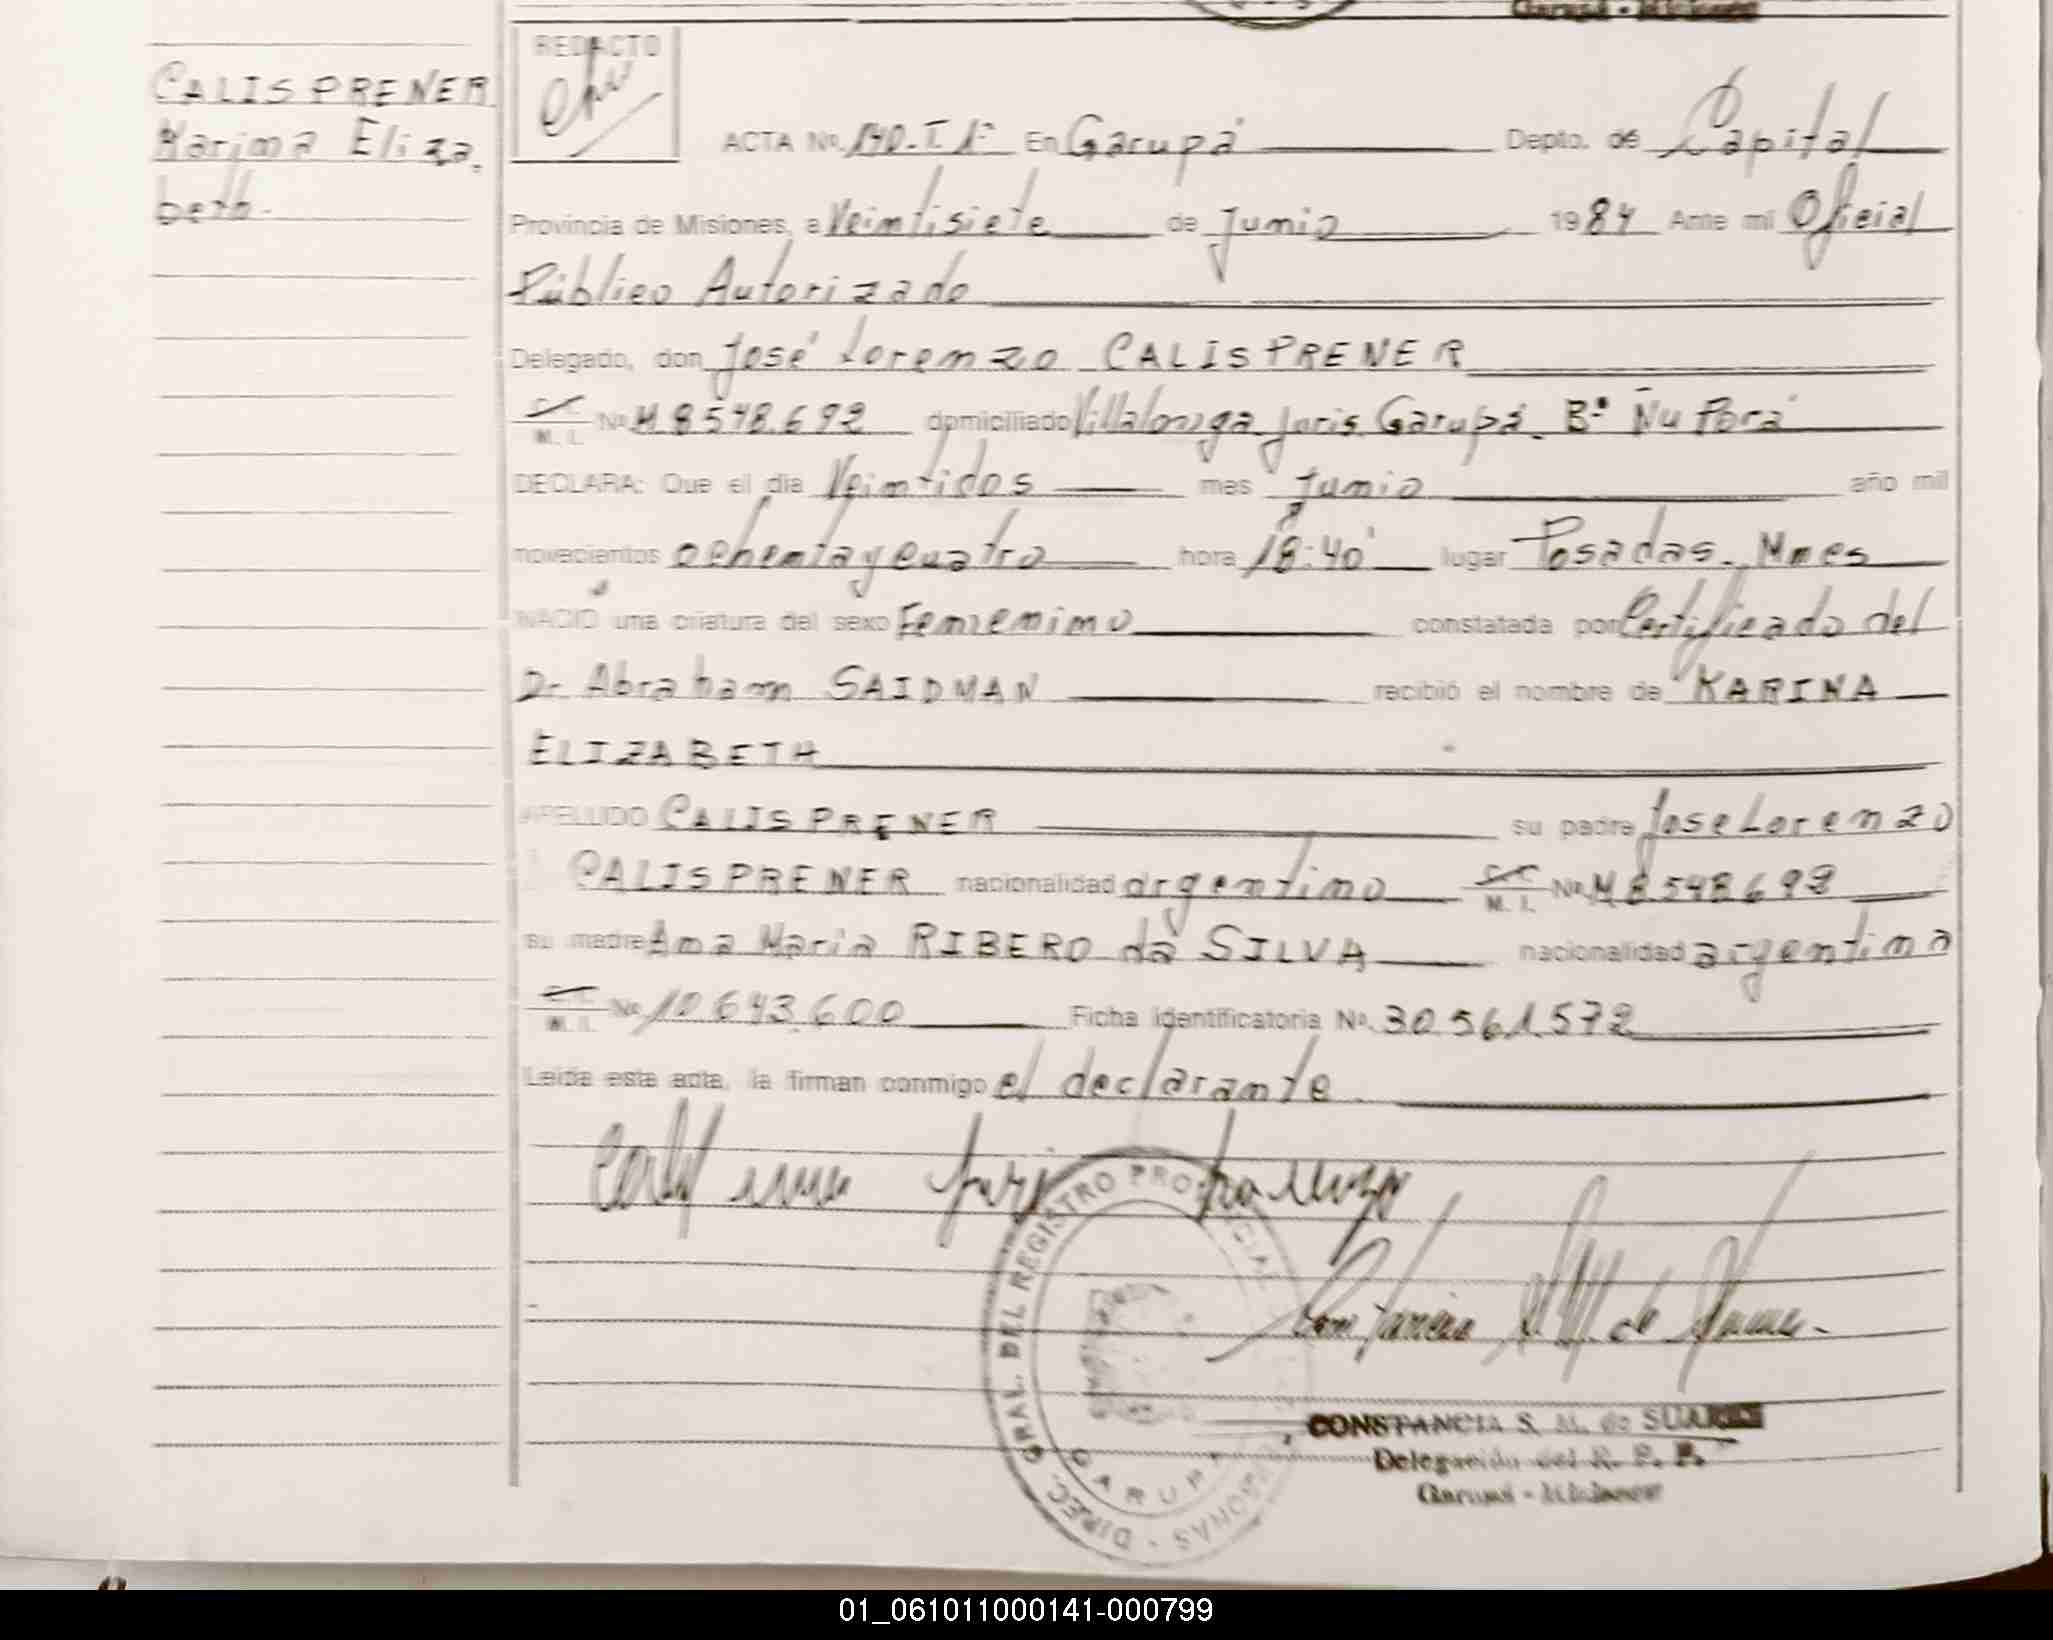 Garupá - Misiones
REDACTO
CALISPRENER
Karina Eliza.
beth.
ACTA No. 140. T. 1º En Garupá Depto. de Capital
Provincia de Misiones, a Veintisiete de Junio 1984 Ante mi Oficial
Público Autorizado
Delegado, don José Lorenzo CALISPRENER
C. I. M. I. No. M 8.548.692 domiciliado Villalonga Juris. Garupá. Bº Ñu Porá
DECLARA: Que el día Veintidos mes Junio año mil
novecientos ochenta y cuatro hora 18:40' lugar Posadas. Mnes
NACIÓ una criatura del sexo Femenino constatada por Certificado del
Dr Abraham SAIDMAN recibió el nombre de KARINA
ELIZABETH
APELLIDO CALISPRENER su padre Jose Lorenzo
CALISPRENER nacionalidad argentino C. I. M. I. No. M 8.548.692
su madre Ana Maria RIBERO da SILVA nacionalidad argentina
C. I. M. I. No. 10.643.600 Ficha identificatoria No. 30.561.572
Leída esta acta, la firman conmigo el declarante.
DIREC. GRAL. DEL REGISTRO PROVINCIAL PERSONAS
GARUPA
CONSTANCIA S. M. de SUAREZ
Delegación del R. P. P.
Garupá - Misiones
01_061011000141-000799